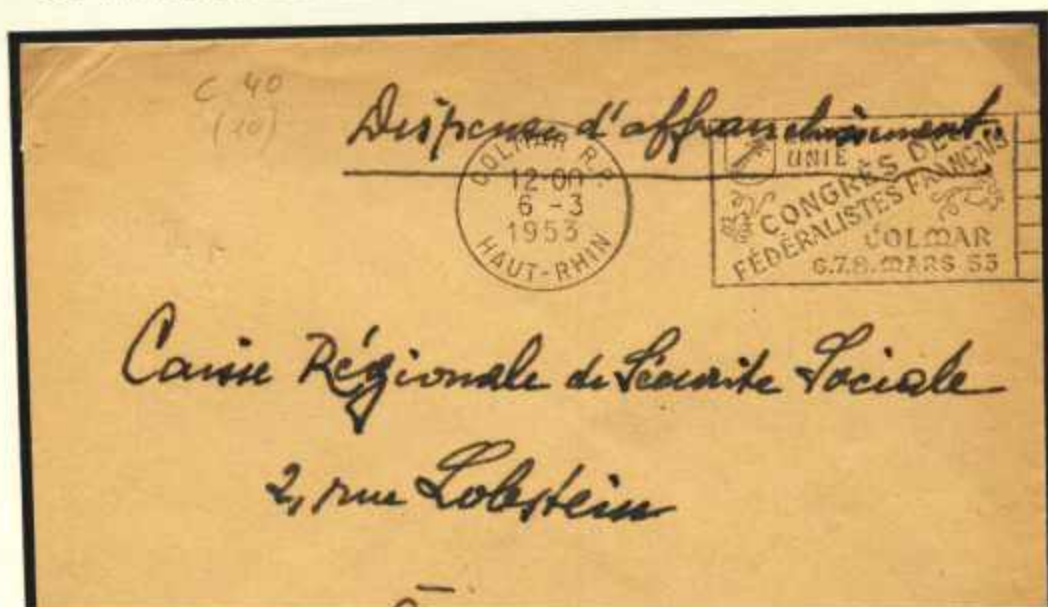 C 40
(20)
Dispense d'affranchissement.
COLMAR R.P.
12-00
6 -3
1953
HAUT-RHIN
UNIE
CONGRÈS DES
FÉDÉRALISTES FRANÇAIS
COLMAR
6.7.8. MARS 53
Caisse Régionale de Sécurite Sociale
2, rue Lobstein